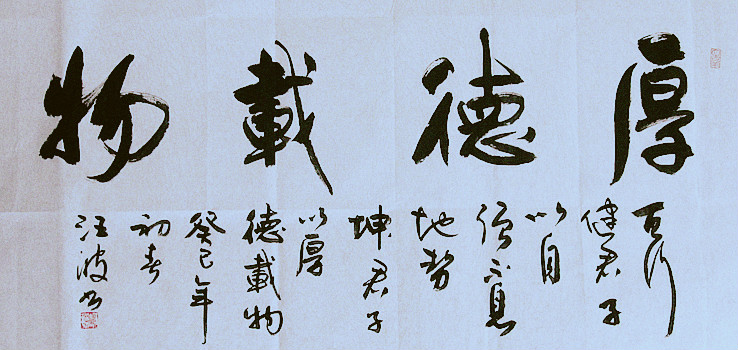 厚德載物
天行
健君子
以自
强不息
地势
坤君子
以厚
德載物
癸巳年
初春
汪波书